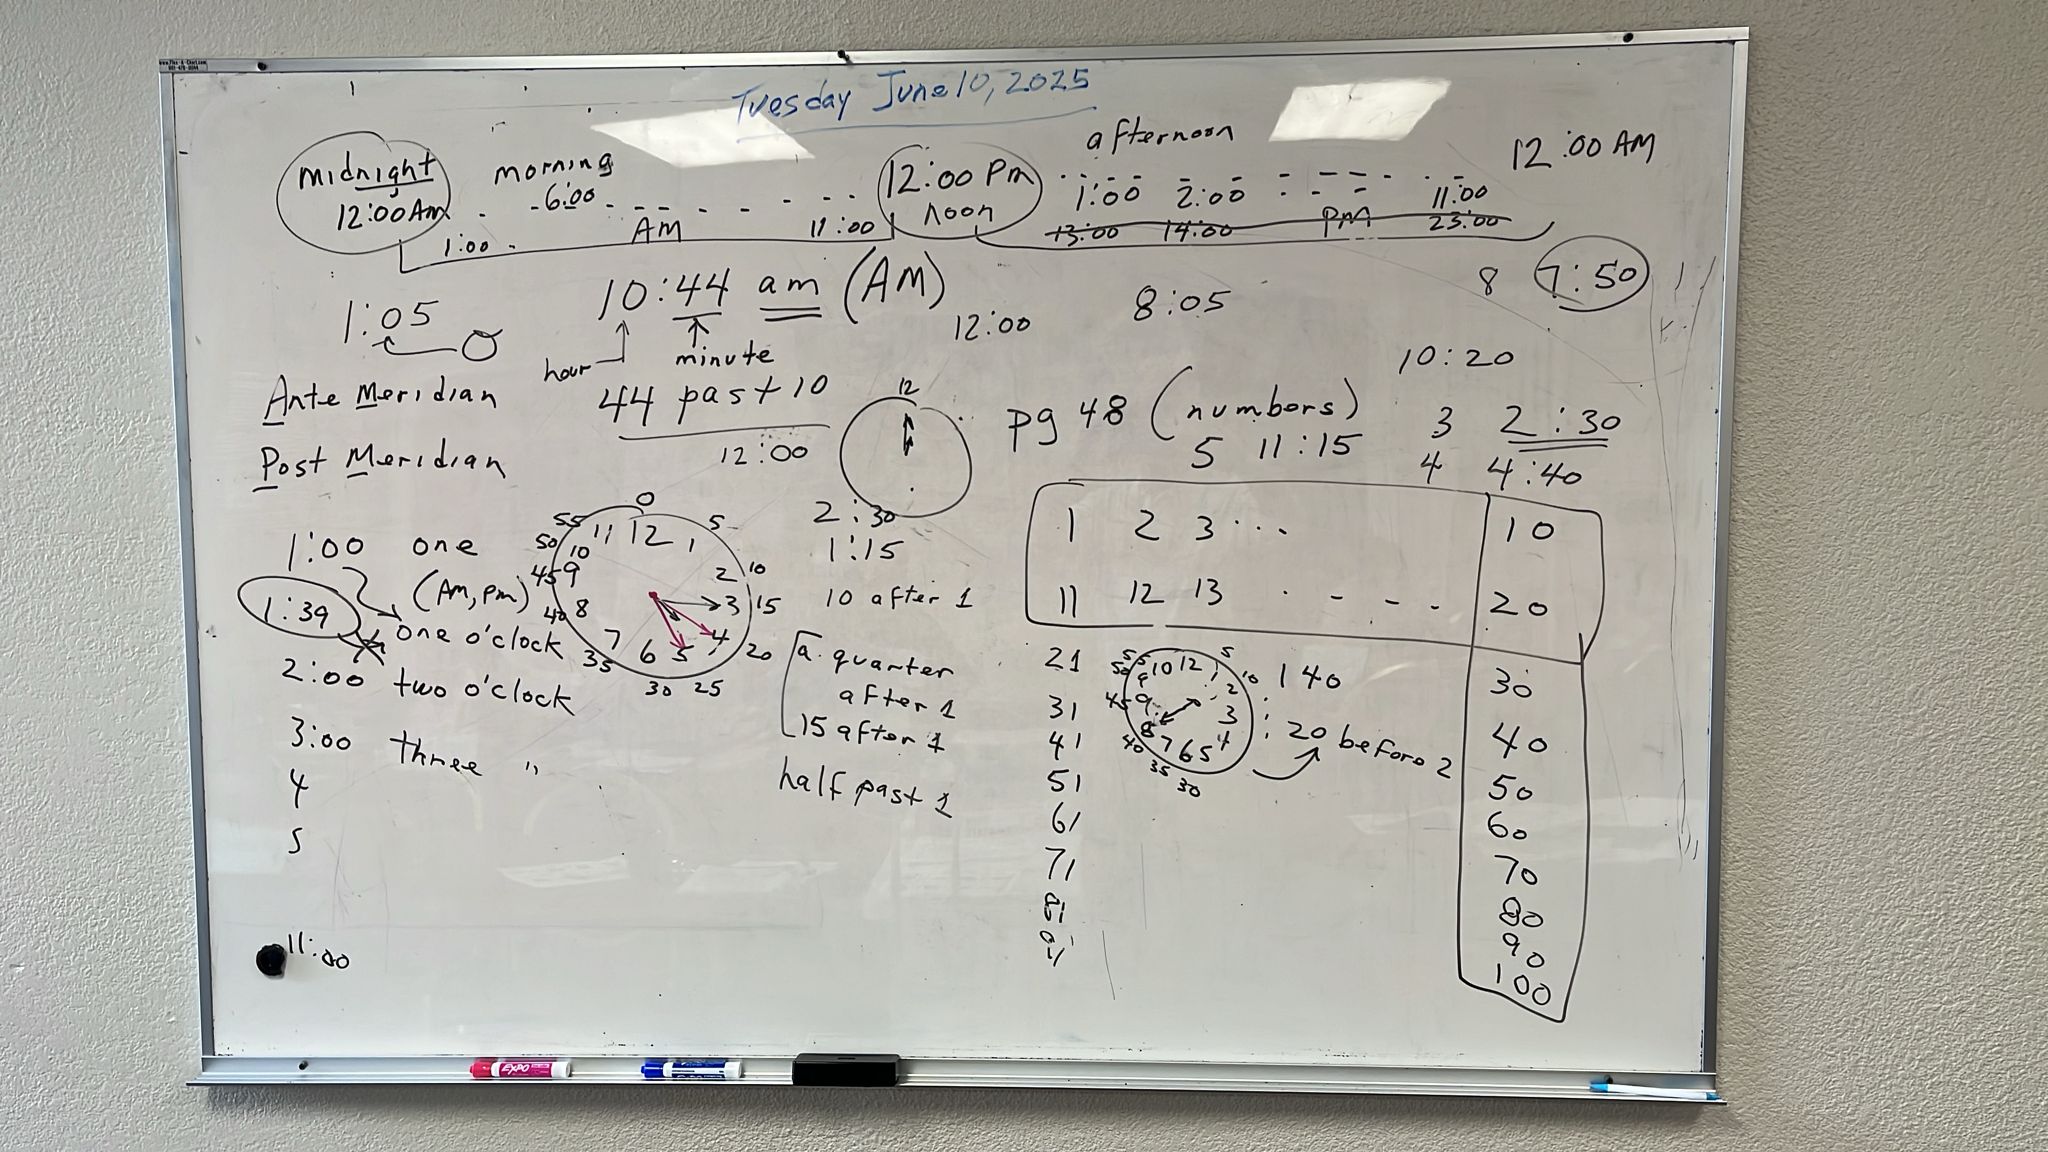 Tuesday June 10, 2025
midnight
12:00 Am
morning
6:00
1:00
AM
11:00
12:00 Pm
noon
afternoon
1:00 2:00 11:00
13:00 14:00 pm 23:00
12:00 AM
1:05
10:44 am (AM)
hour minute
44 past 10
12:00
12:00
8:05
8 7:50
10:20
Ante Meridian
Post Meridian
12
pg 48 (numbers)
5 11:15
3 2:30
4 4:40
1:00 one
(Am, pm)
1:39
one o'clock
2:00 two o'clock
3:00 three "
4
5
11:00
0
55 11 12 1 5
50 10 2 10
45 9 3 15
40 8 4 20
35 7 6 5
30 25
2:30
1:15
10 after 1
a quarter
after 1
15 after 1
half past 1
1 2 3 ... 10
11 12 13 . - - - 20
21 30
31 40
41 50
51 60
61 70
71 80
81 90
91 100
5 10 12 1 5
50 9 2 10
45 9 3
40 8 7 6 5 4
35 30
1 40
: 20 before 2
EXPO